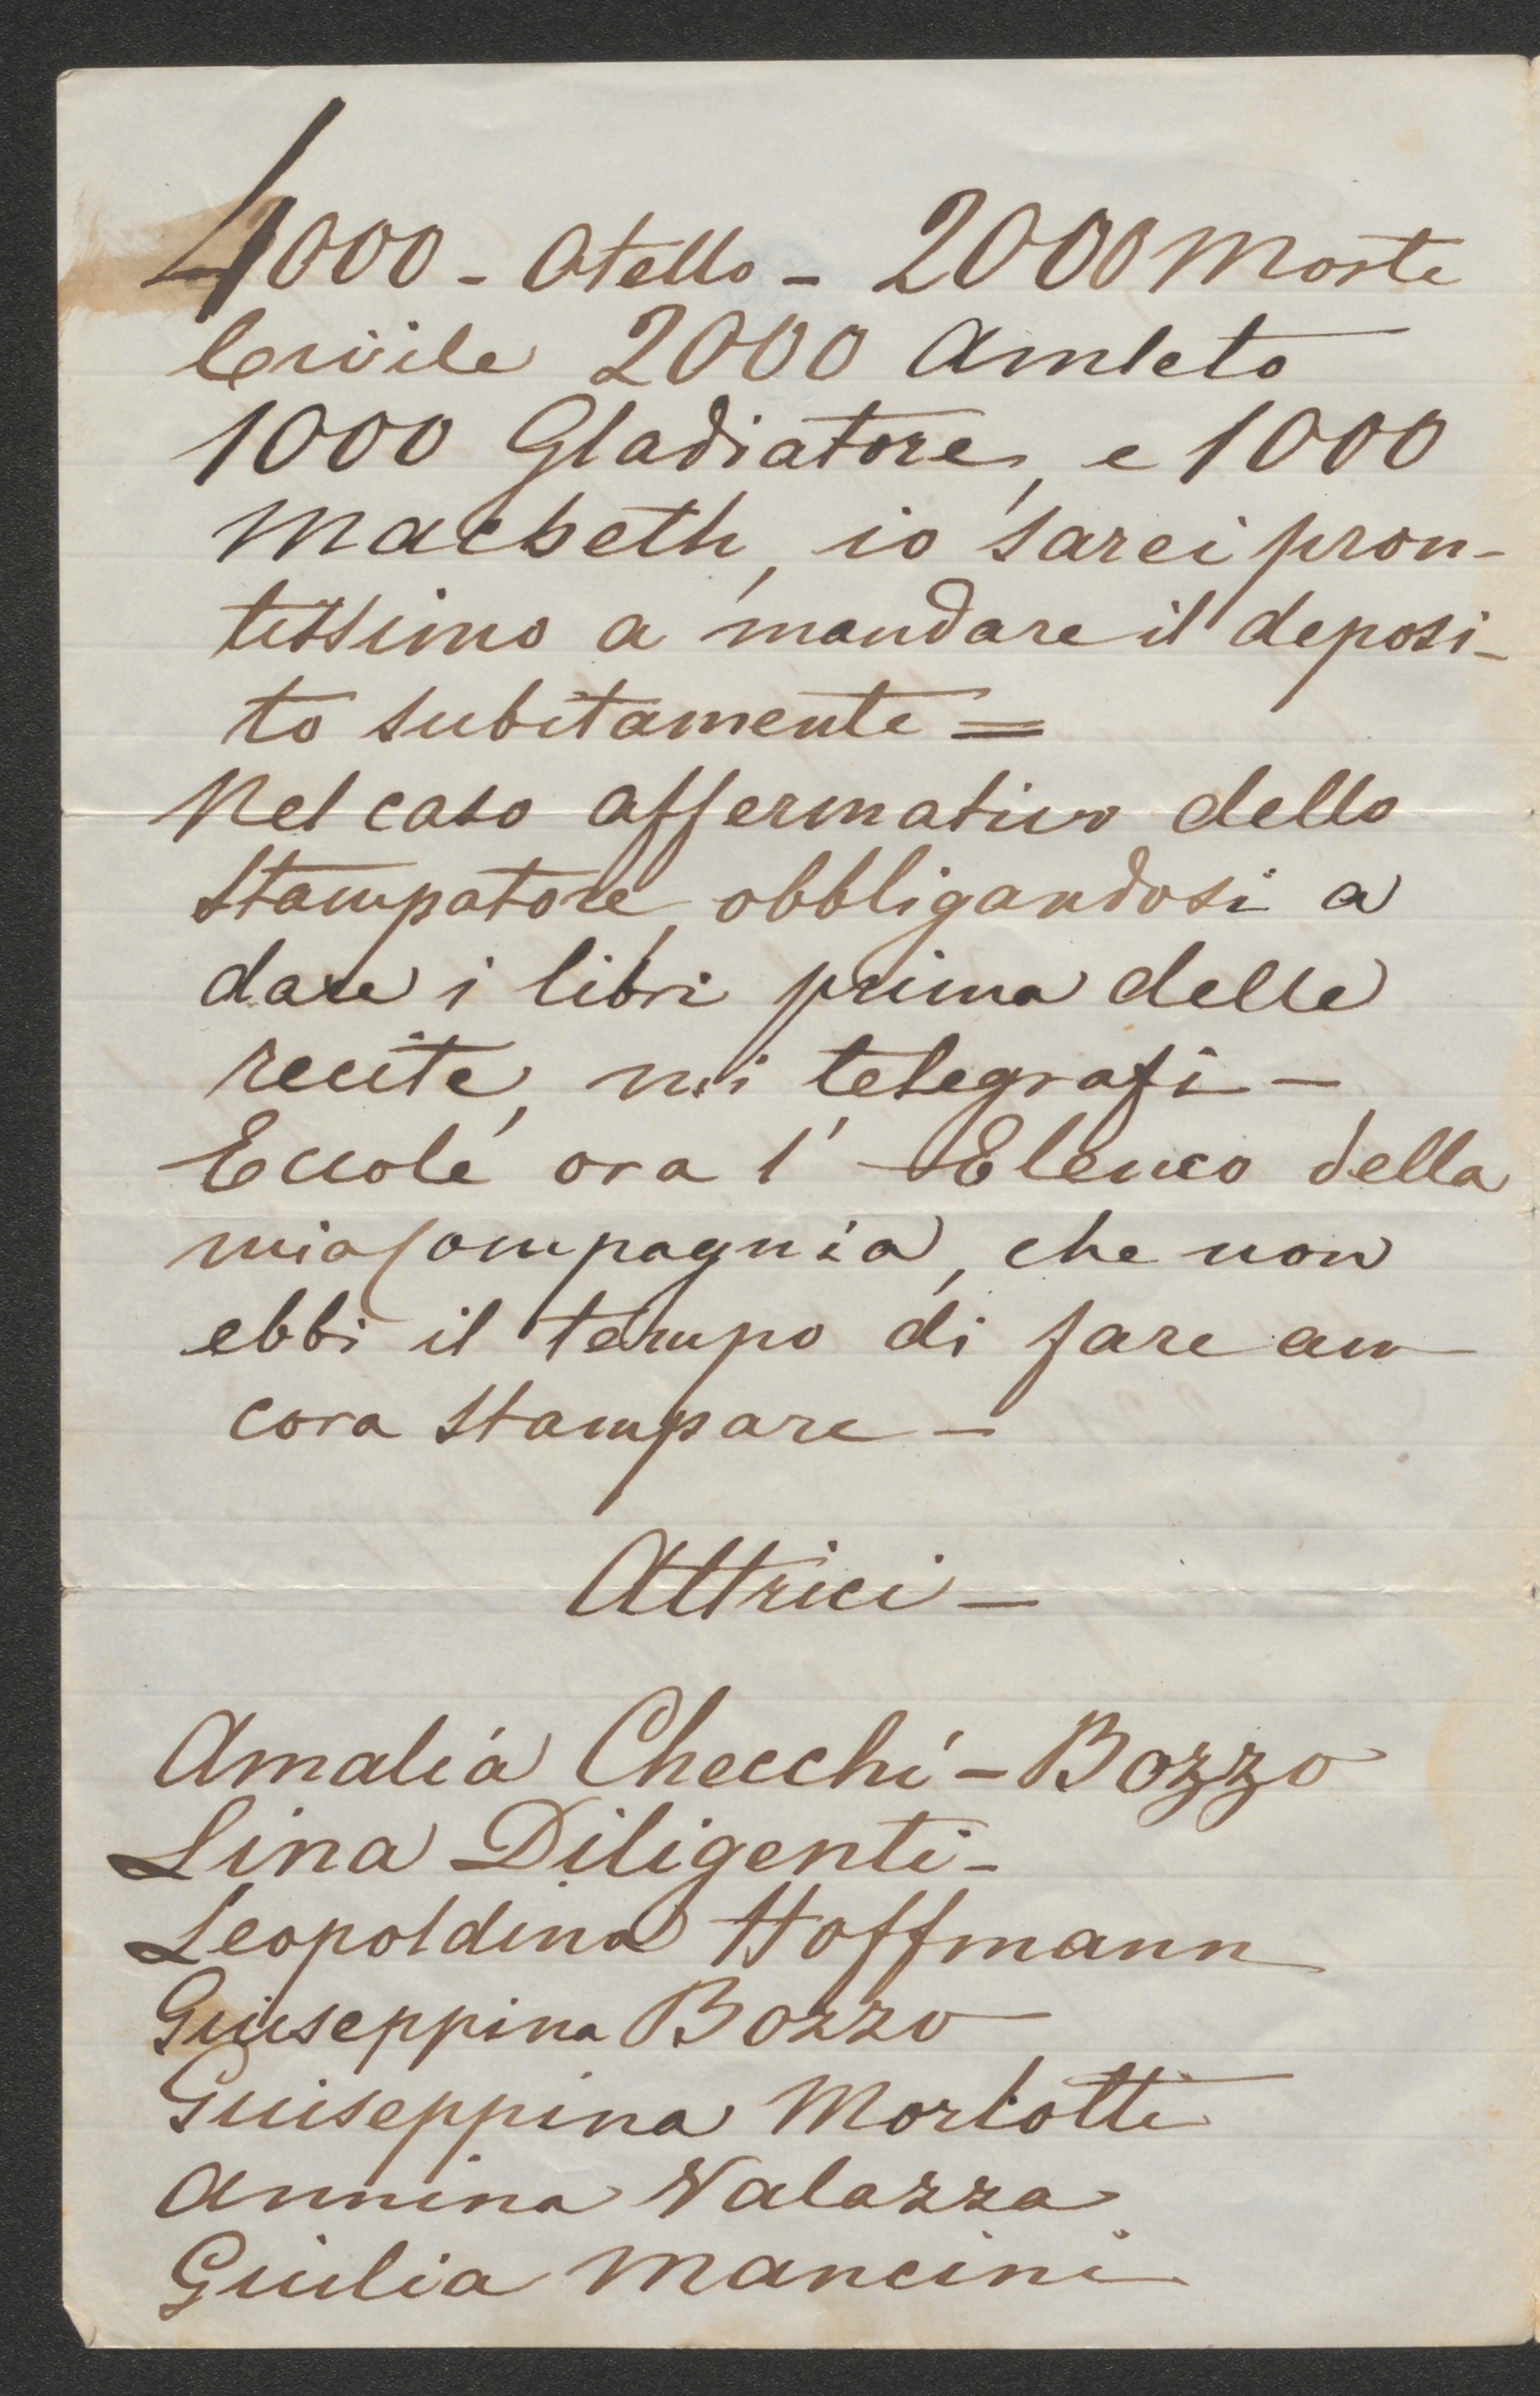 4000 - Otello - 2000 Morte
Civile 2000 Amleto
1000 Gladiatore, e 1000
Macbeth, io sarei pron-
tissimo a mandare il deposi-
to subitamente =
Nel caso affermativo dello
Stampatore, obbligandosi a
dare i libri prima delle
recite, mi telegrafi -
Eccole ora l' Elenco della
mia Compagnia, che non
ebbi il tempo di fare an
cora stampare -
Attrici -
Amalia Checchi - Bozzo
Lina Diligenti -
Leopoldina Hoffmann
Giuseppina Bozzo
Giuseppina Morlotti
Annina Valazza
Giulia Mancini